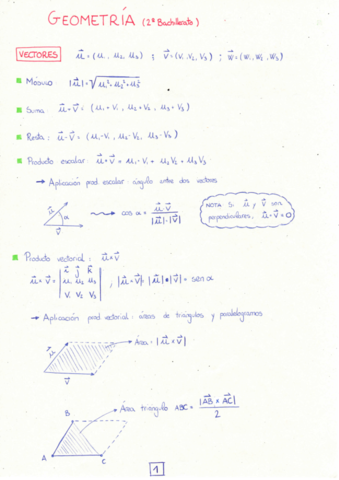 GEOMETRÍA (2º Bachillerato)
VECTORES u⃗ = (u₁, u₂, u₃) ; v⃗ = (v₁, v₂, v₃) ; w⃗ = (w₁, w₂, w₃)
Módulo |u⃗| = √(u₁² + u₂² + u₃²)
Suma u⃗ + v⃗ = (u₁ + v₁, u₂ + v₂, u₃ + v₃)
Resta: u⃗ - v⃗ = (u₁ - v₁, u₂ - v₂, u₃ - v₃)
Producto escalar u⃗ · v⃗ = u₁ · v₁ + u₂ v₂ + u₃ v₃
→ Aplicación prod escalar: ángulo entre dos vectores
u⃗ α v⃗
cos α = u⃗ · v⃗ / |u⃗| · |v⃗|
NOTA Si u⃗ y v⃗ son
perpendiculares, u⃗ · v⃗ = 0
Producto vectorial: u⃗ × v⃗
i⃗ j⃗ k⃗
u⃗ × v⃗ = u₁ u₂ u₃ , |u⃗ × v⃗| = |u⃗| · |v⃗| · sen α
v₁ v₂ v₃
→ Aplicación prod vectorial: áreas de triángulos y paralelogramos
u⃗ v⃗
→ Área = |u⃗ × v⃗|
B
→ Área triángulo ABC = |AB⃗ × AC⃗| / 2
A C
1